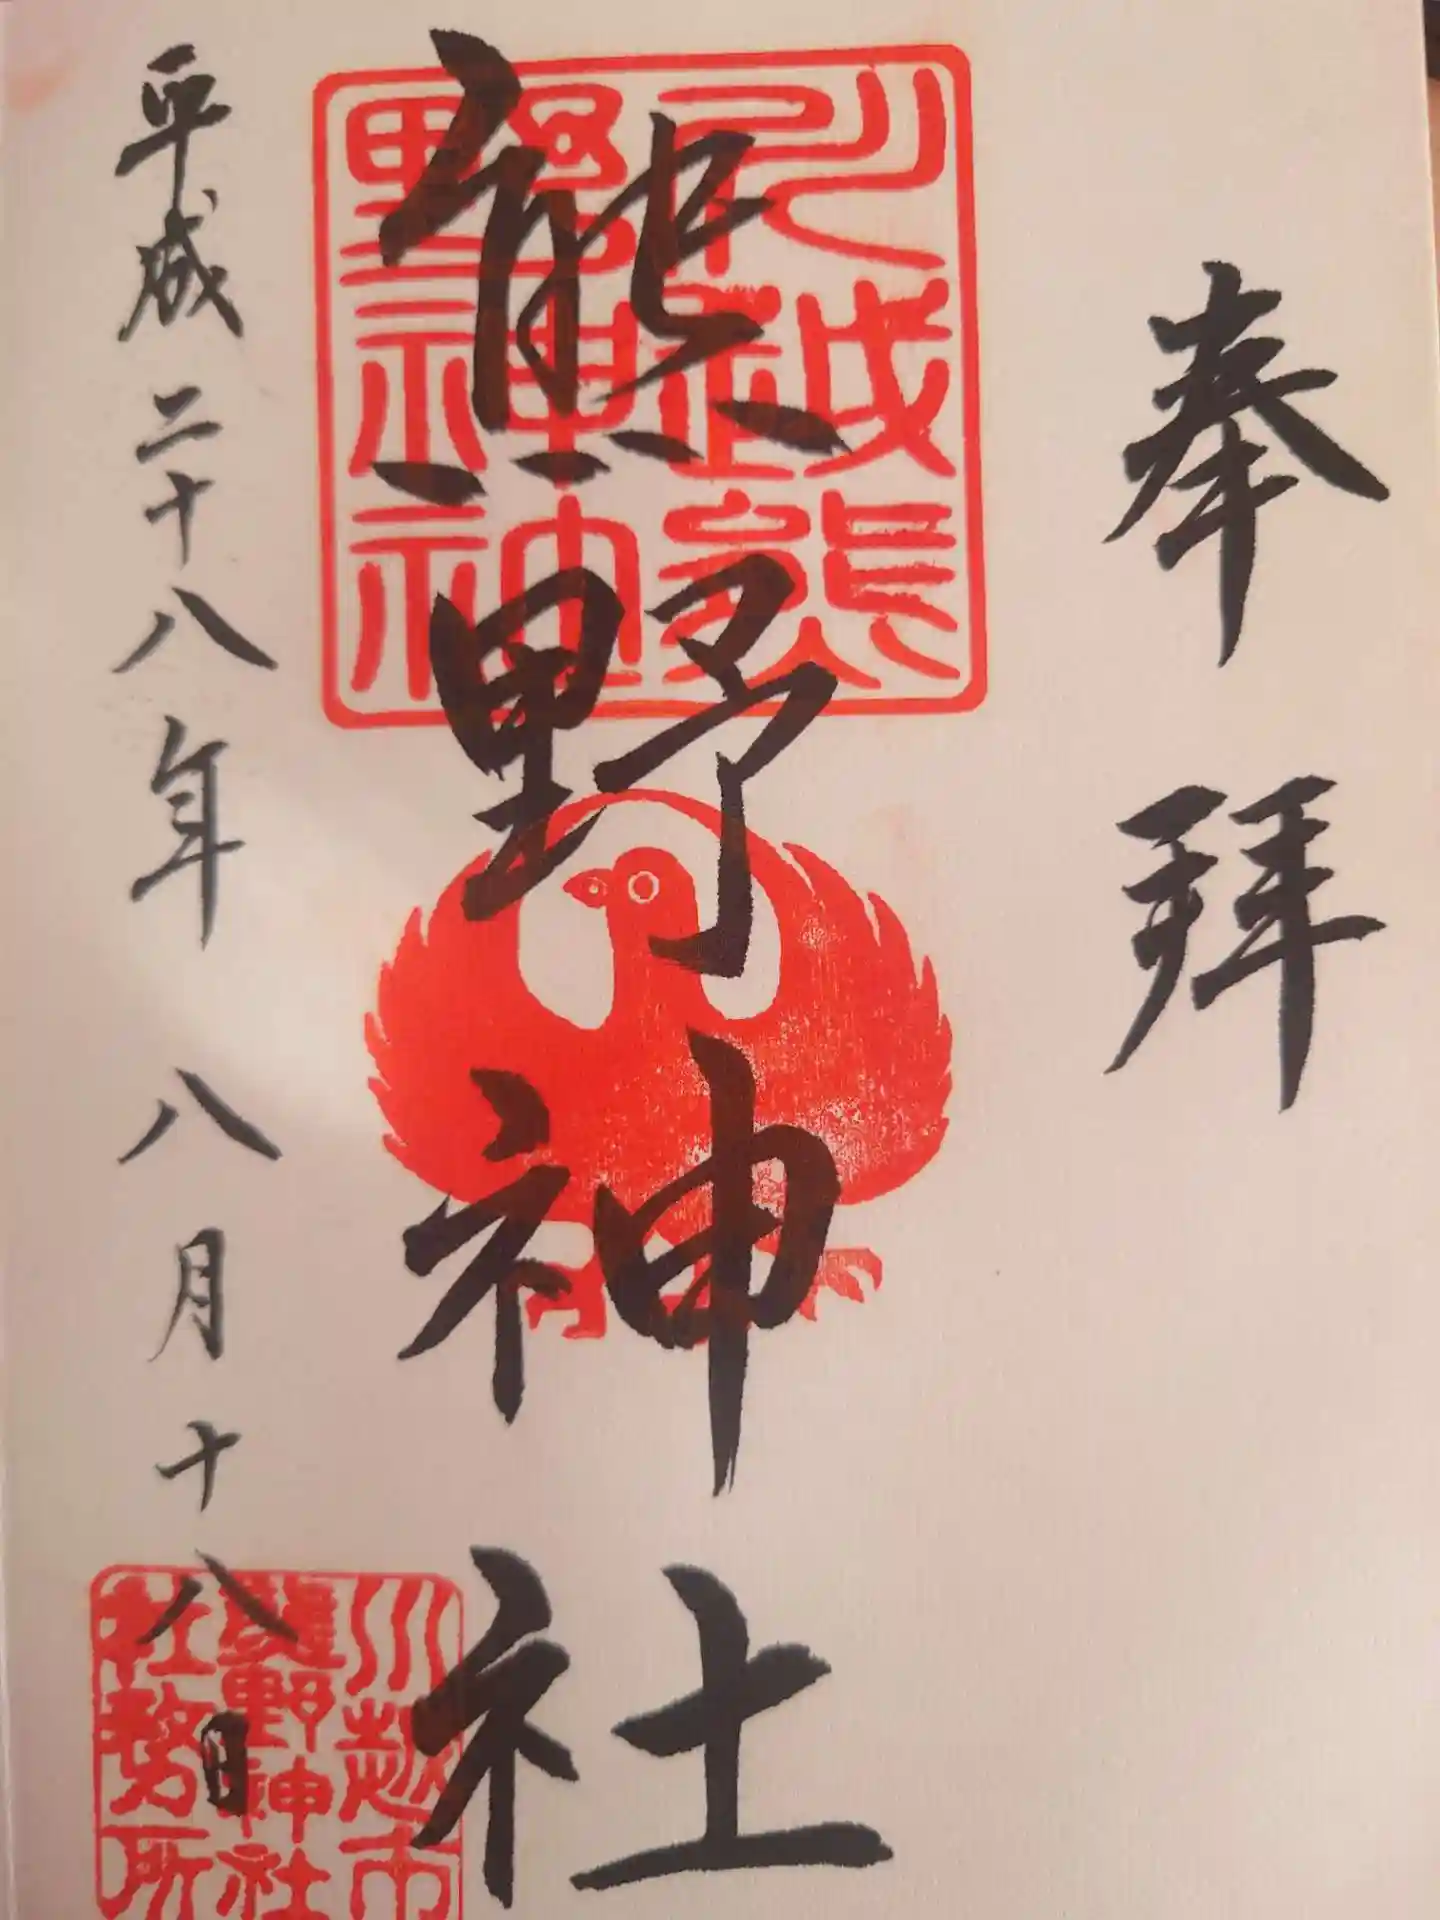 奉拝
熊野神社
平成二十八年八月十八日
川越熊
野神社
川越市
熊野神社
社務所